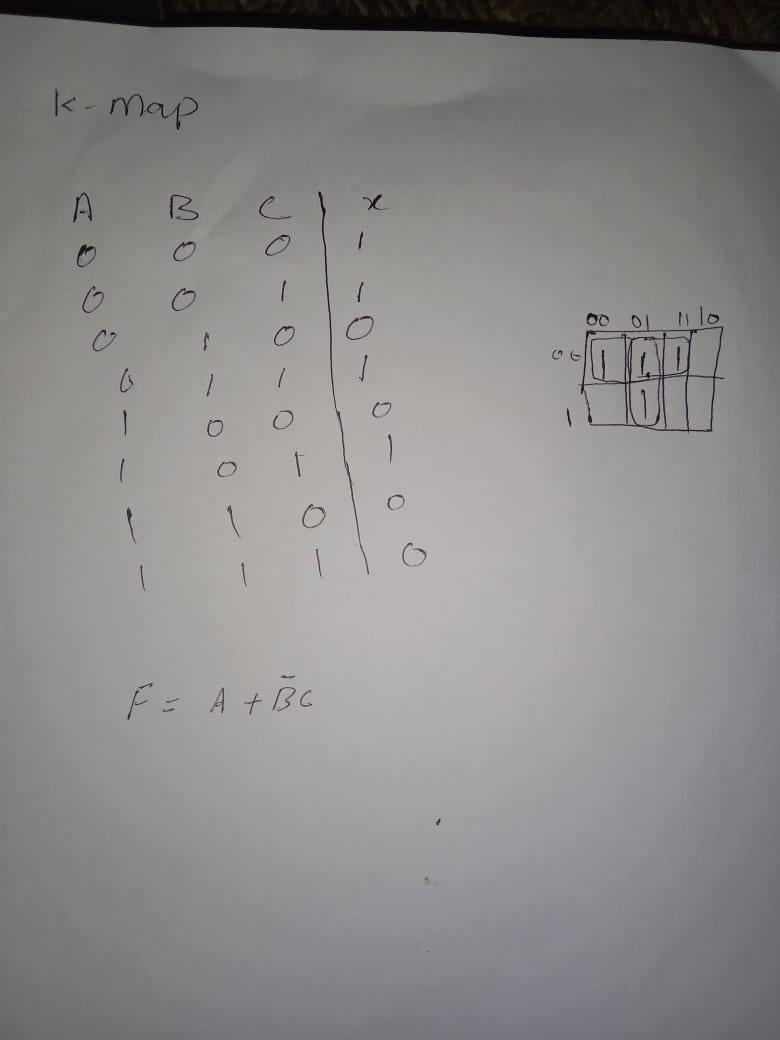 K-Map
A B C x
0 0 0 1
0 0 1 1
0 1 0 0
0 1 1 1
1 0 0 0
1 0 1 1
1 1 0 0
1 1 1 0
00 01 11 10
00 1 1 1
1 1
F = A + B̄C